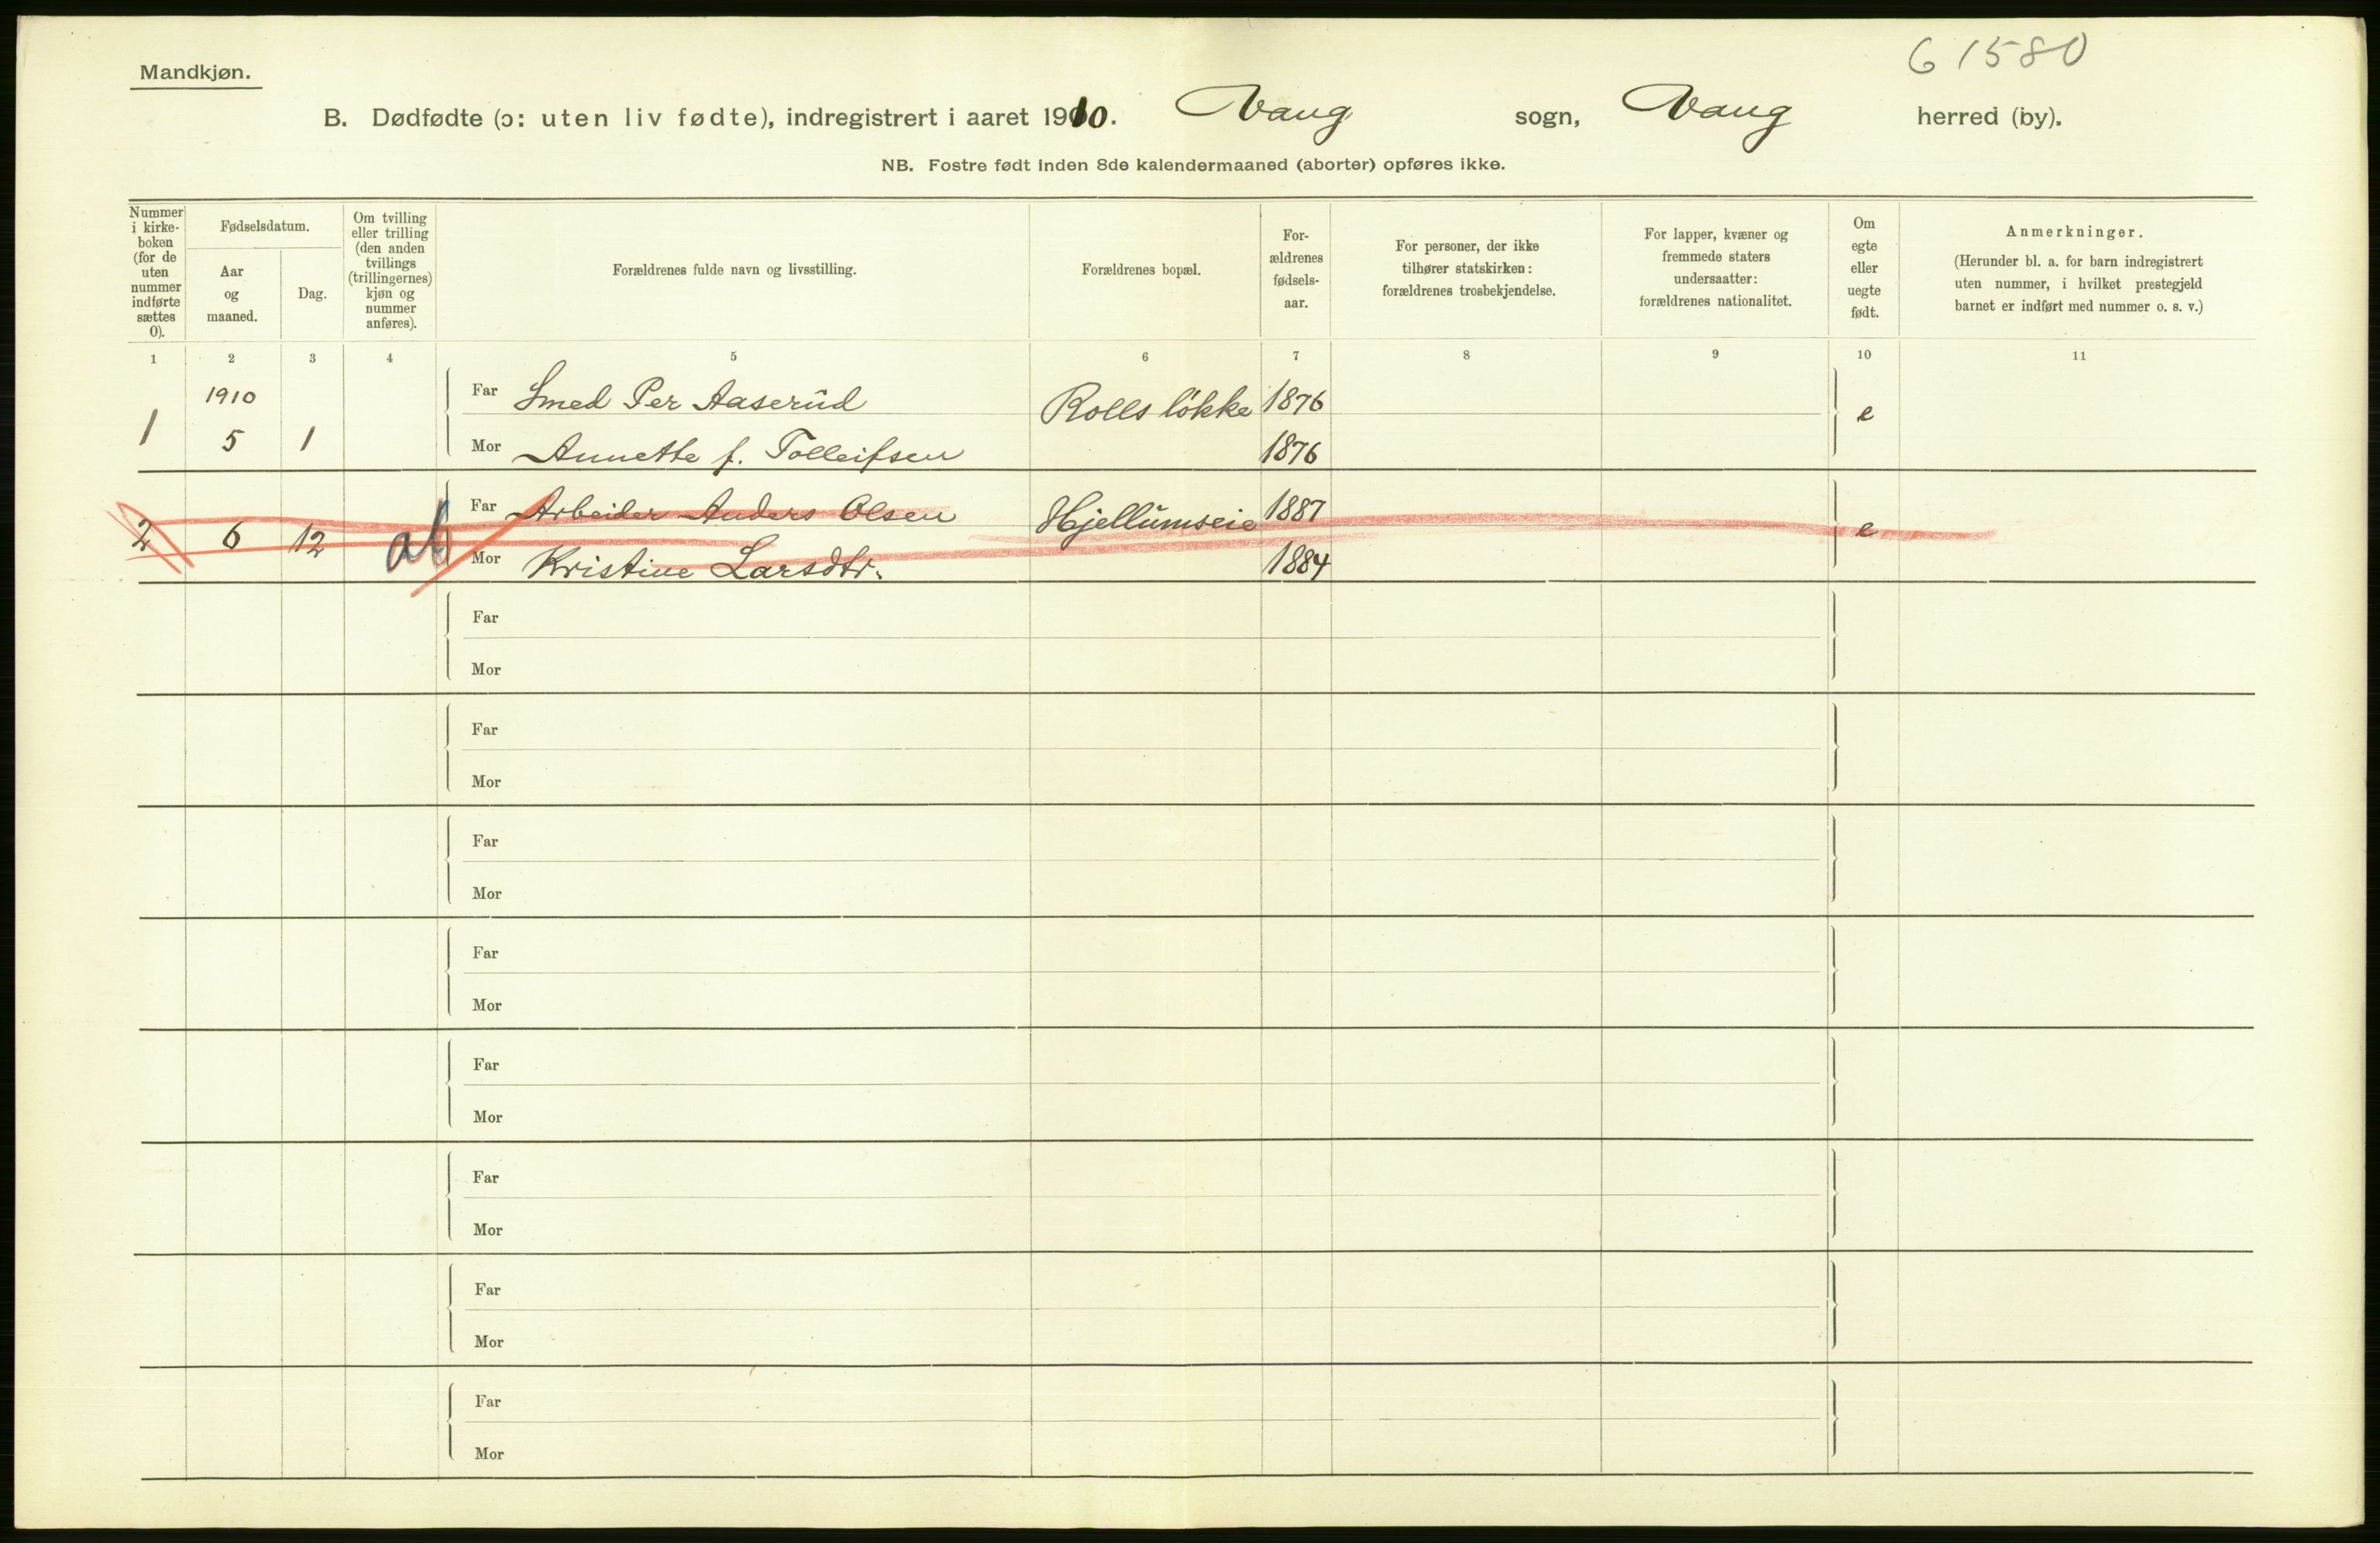 61580
Mandkjøn.
B. Dødfødte (ɔ: uten liv fødte), indregistrert i aaret 1910. Vang sogn, Vang herred (by).
NB. Fostre født inden 8de kalendermaaned (aborter) opføres ikke.
Nummer
i kirke-
boken
(for de
uten
nummer
indførte
sættes
0).
Fødselsdatum.
Aar
og
maaned.
Dag.
Om tvilling
eller trilling
(den anden
tvillings
(trillingernes)
kjøn og
nummer
anføres).
Forældrenes fulde navn og livsstilling.
Forældrenes bopæl.
For-
ældrenes
fødsels-
aar.
For personer, der ikke
tilhører statskirken:
forældrenes trosbekjendelse.
For lapper, kvæner og
fremmede staters
undersaatter:
forældrenes nationalitet.
Om
egte
eller
uegte
født.
Anmerkninger.
(Herunder bl. a. for barn indregistrert
uten nummer, i hvilket prestegjeld
barnet er indført med nummer o. s. v.)
1 2 3 4 5 6 7 8 9 10 11
1910
Far Smed Per Aaserud Rolls løkke 1876 e
1 5 1 Mor Annette f. Tolleifsen 1876
Far Arbeider Anders Olsen Hjellumseie 1887
2 6 12 ab e
Mor Kristine Larsdtr. 1884
Far
Mor
Far
Mor
Far
Mor
Far
Mor
Far
Mor
Far
Mor
Far
Mor
Far
Mor